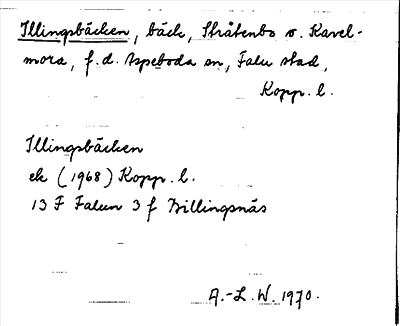 Illingsbäcken, bäck, Stråtenbo o. Karel-
mora, f.d. Aspeboda sn, Falu stad,
Kopp. l.
Illingsbäcken
ek (1968) Kopp. l.
13 F Falun 3 f Billingsnäs
A.-L. W. 1970.